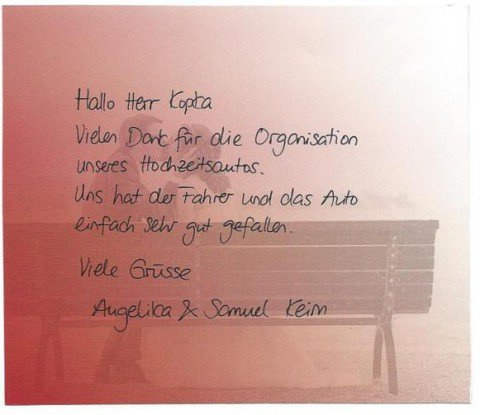 Hallo Herr Kopka
Vielen Dank für die Organisation
unseres Hochzeitsautos.
Uns hat der Fahrer und das Auto
einfach sehr gut gefallen.
Viele Grüsse
Angelika & Samuel Keim